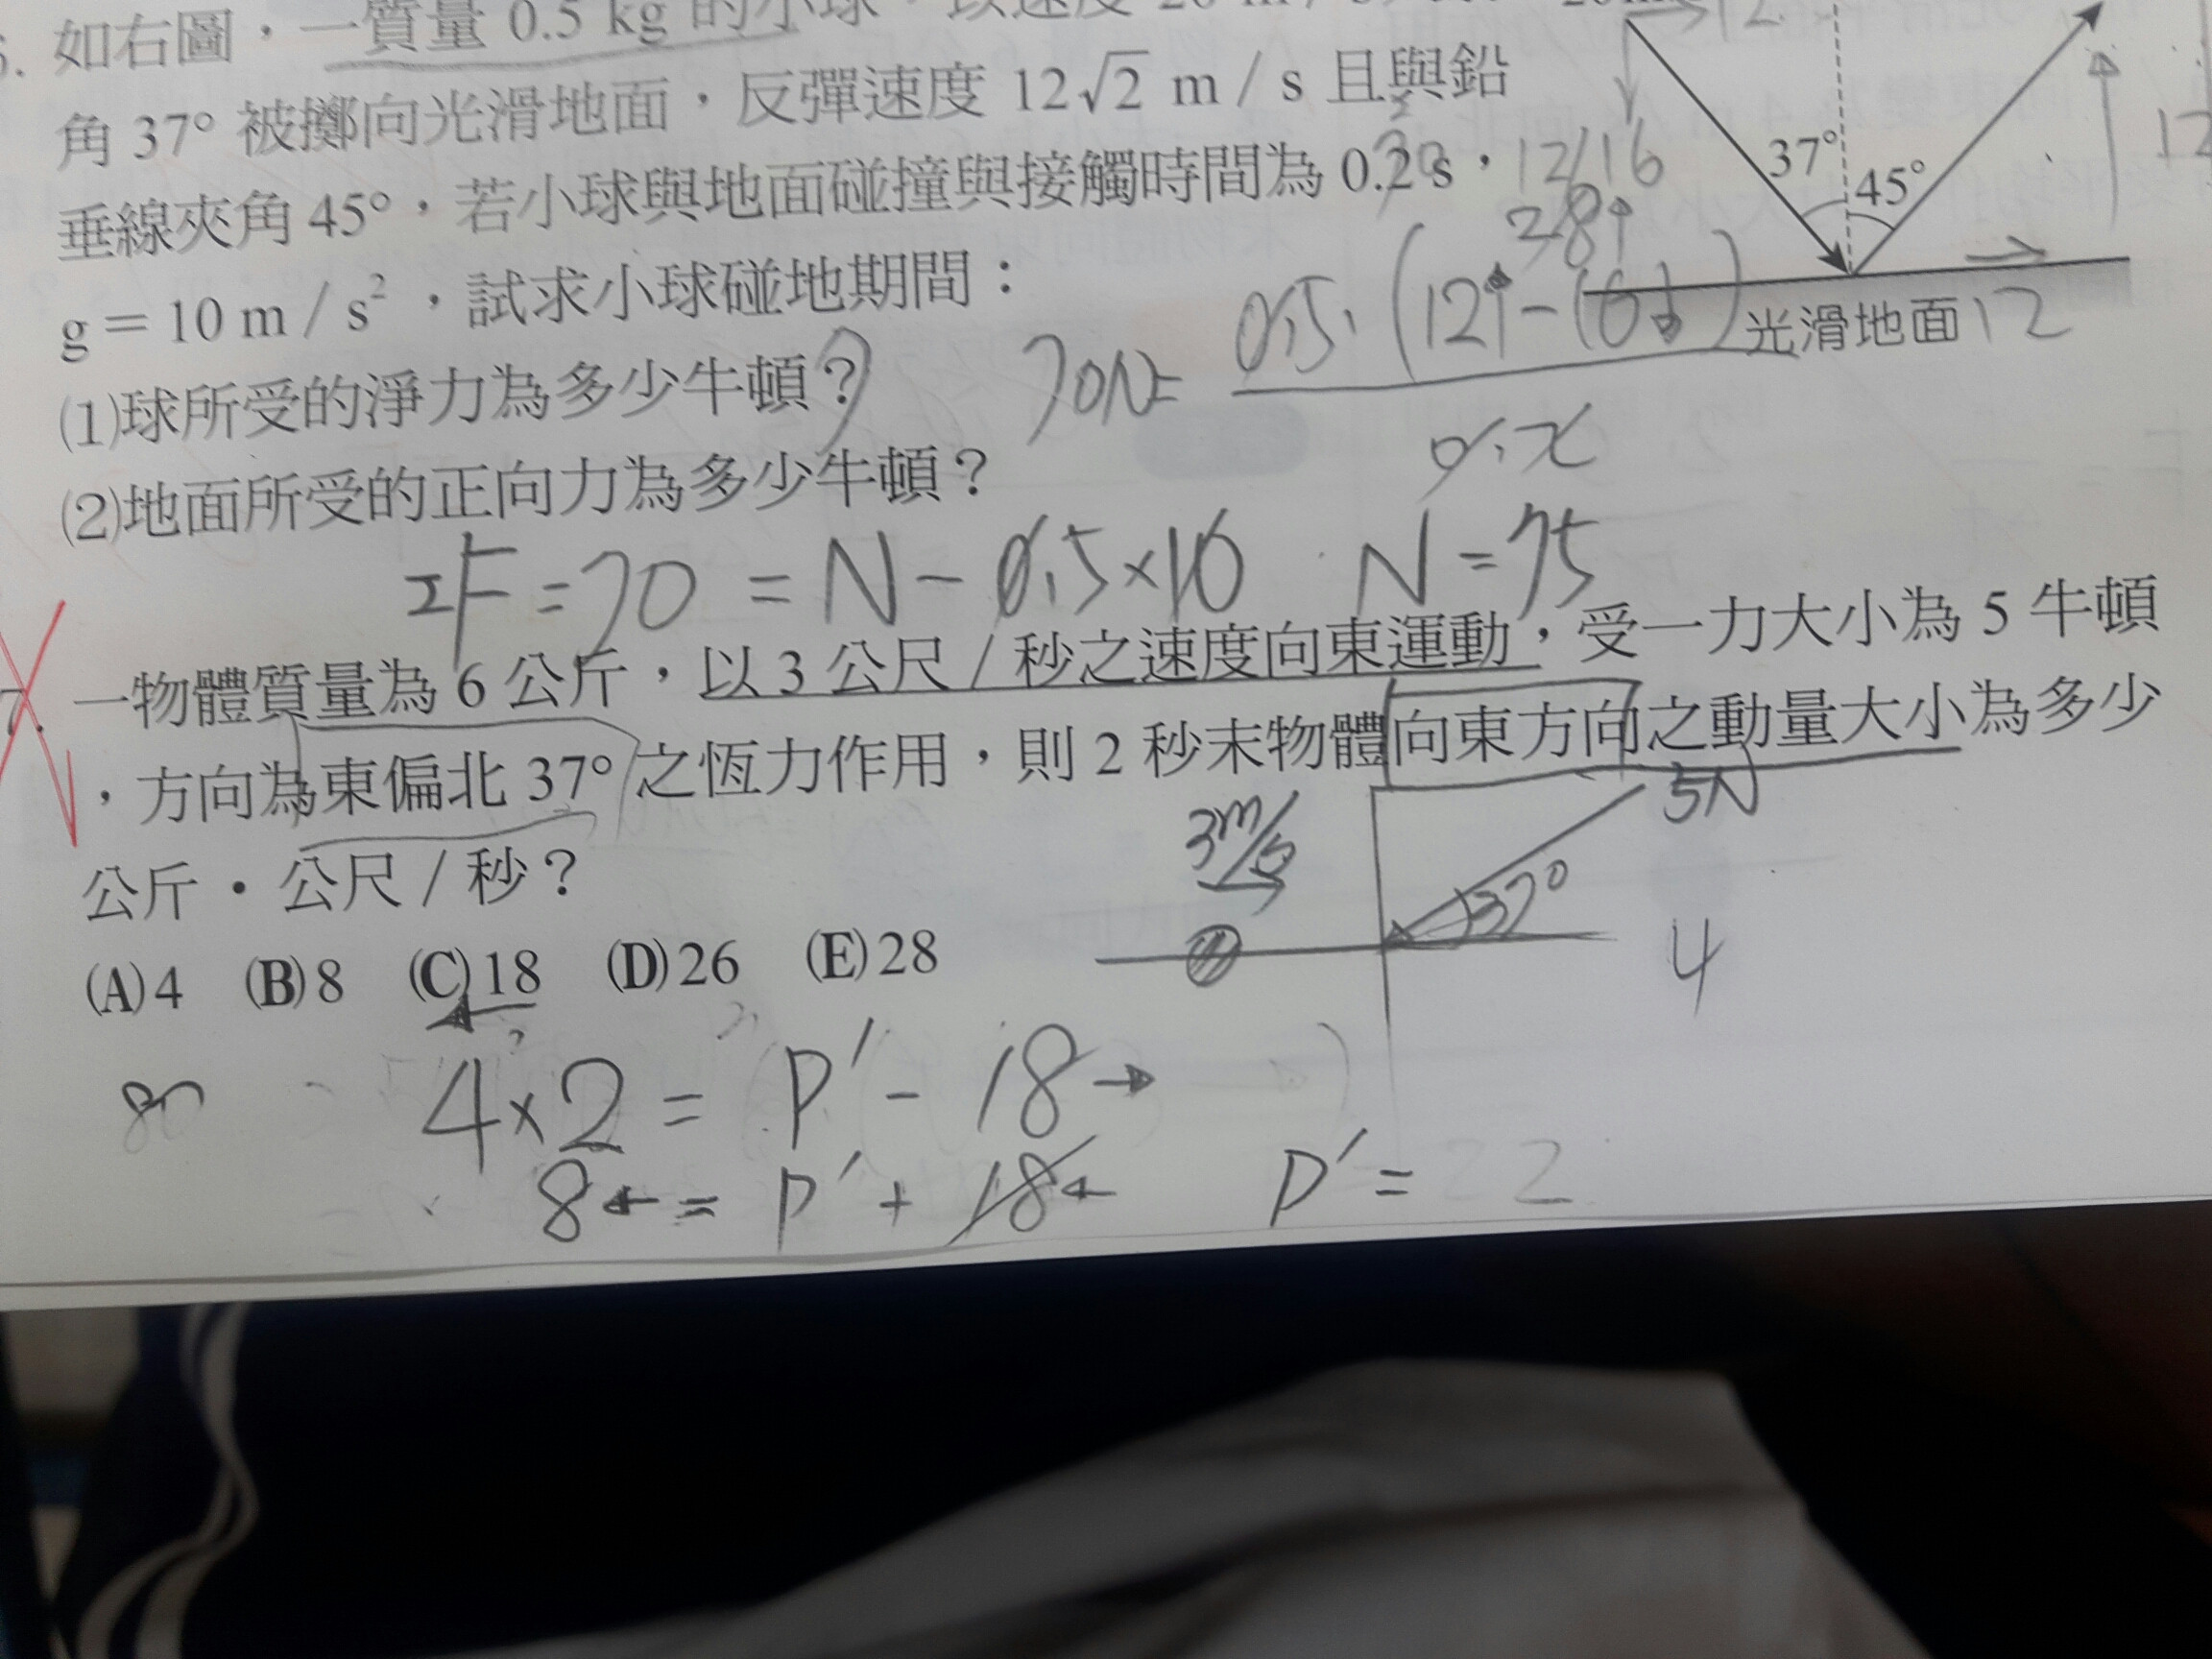 如右圖，一質量 0.5 kg 的小球，以速度 20 m / s
角 37° 被擲向光滑地面，反彈速度 12√2 m / s 且與鉛
垂線夾角 45°，若小球與地面碰撞與接觸時間為 0.2 s，
g＝10 m / s²，試求小球碰地期間：
(1)球所受的淨力為多少牛頓？
(2)地面所受的正向力為多少牛頓？
12
37°
45°
12
光滑地面 12
12/16
28↑
70N= 0.5·(12↑-16↓)
ΣF=70=N-0.5×10 N=75
7. 一物體質量為 6 公斤，以 3 公尺 / 秒之速度向東運動，受一力大小為 5 牛頓
，方向為東偏北 37° 之恆力作用，則 2 秒末物體向東方向之動量大小為多少
公斤・公尺 / 秒？
(A)4 (B)8 (C)18 (D)26 (E)28
3m/s
5N
37°
4
4×2=P′-18→
8←=P′+18←
P′=